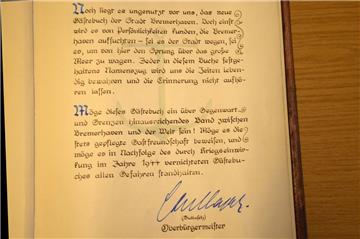 Noch liegt es ungenutzt vor uns, das neue
Gästebuch der Stadt Bremerhaven. Doch einst
wird es von Persönlichkeiten künden, die Bremer-
haven aufsuchten – sei es der Stadt wegen, sei
es, um von hier den Sprung über das große
Meer zu wagen. Jeder in diesem Buche festge-
haltene Namenszug wird uns die Zeiten leben-
dig bewahren und die Erinnerung nicht aufhö-
ren lassen.
Möge dieses Gästebuch ein über Gegenwart
und Grenzen hinausreichendes Band zwischen
Bremerhaven und der Welt sein! Möge es die
stets gepflegte Gastfreundschaft beweisen, und
möge es in Nachfolge des durch Kriegseinwir-
kung im Jahre 1944 vernichteten Gästebu-
ches allen Gefahren standhalten.
Oberbürgermeister